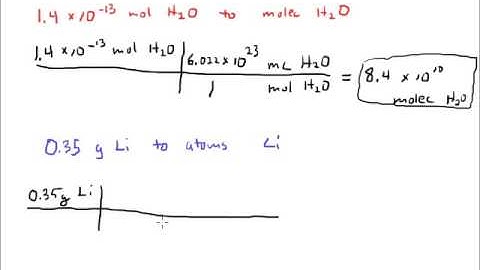 1.4 × 10⁻¹³ mol H₂O to molec H₂O
1.4 × 10⁻¹³ mol H₂O | 6.022 × 10²³ mc H₂O
1 mol H₂O
= 8.4 × 10¹⁰ molec H₂O
0.35 g Li to atoms Li
0.35 g Li